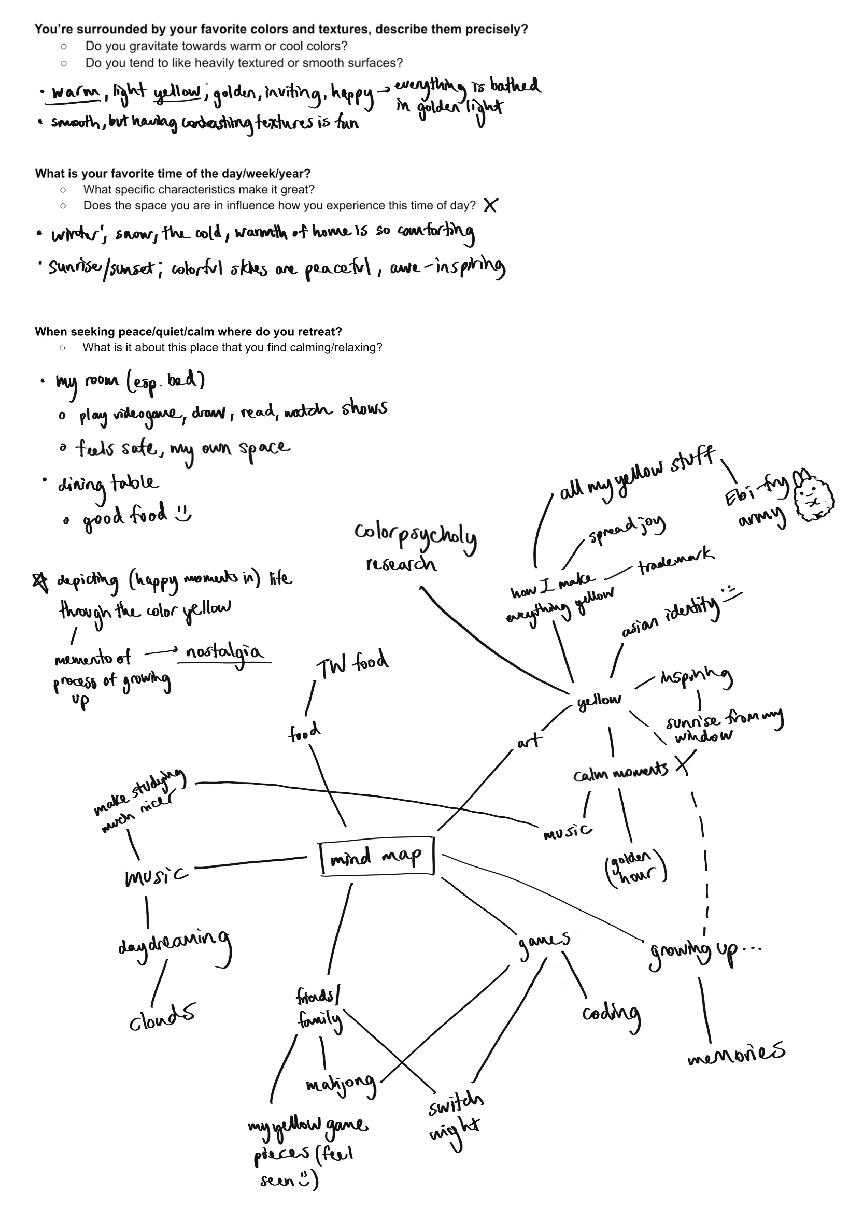 You're surrounded by your favorite colors and textures, describe them precisely?
○ Do you gravitate towards warm or cool colors?
○ Do you tend to like heavily textured or smooth surfaces?
• warm, light yellow; golden, inviting, happy → everything is bathed
in golden light
• smooth, but having contrasting textures is fun
What is your favorite time of the day/week/year?
○ What specific characteristics make it great?
○ Does the space you are in influence how you experience this time of day? X
• winter; snow, the cold, warmth of home is so comforting
• sunrise/sunset; colorful skies are peaceful, awe-inspiring
When seeking peace/quiet/calm where do you retreat?
○ What is it about this place that you find calming/relaxing?
• my room (esp. bed)
○ play videogame, draw, read, watch shows
○ feels safe, my own space
• dining table
○ good food :)
☆ depicting (happy moments in) life
through the color yellow
memento of → nostalgia
process of growing
up
color psycholy
research
all my yellow stuff
Ebi-fry
army
spread joy
how I make
everything yellow
trademark
asian identity :)
yellow
inspiring
sunrise from my
window
art
calm moments
music
(golden
hour)
TW food
food
make studying
much nicer
music
daydreaming
clouds
mind map
games
growing up...
coding
memories
friends/
family
mahjong
switch
night
my yellow game
pieces (feel
seen :))